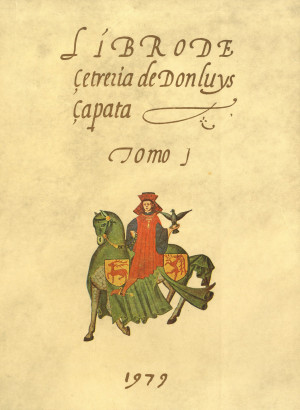 LIBRO DE
Çetreria de Don luys
Çapata
Tomo J
1979